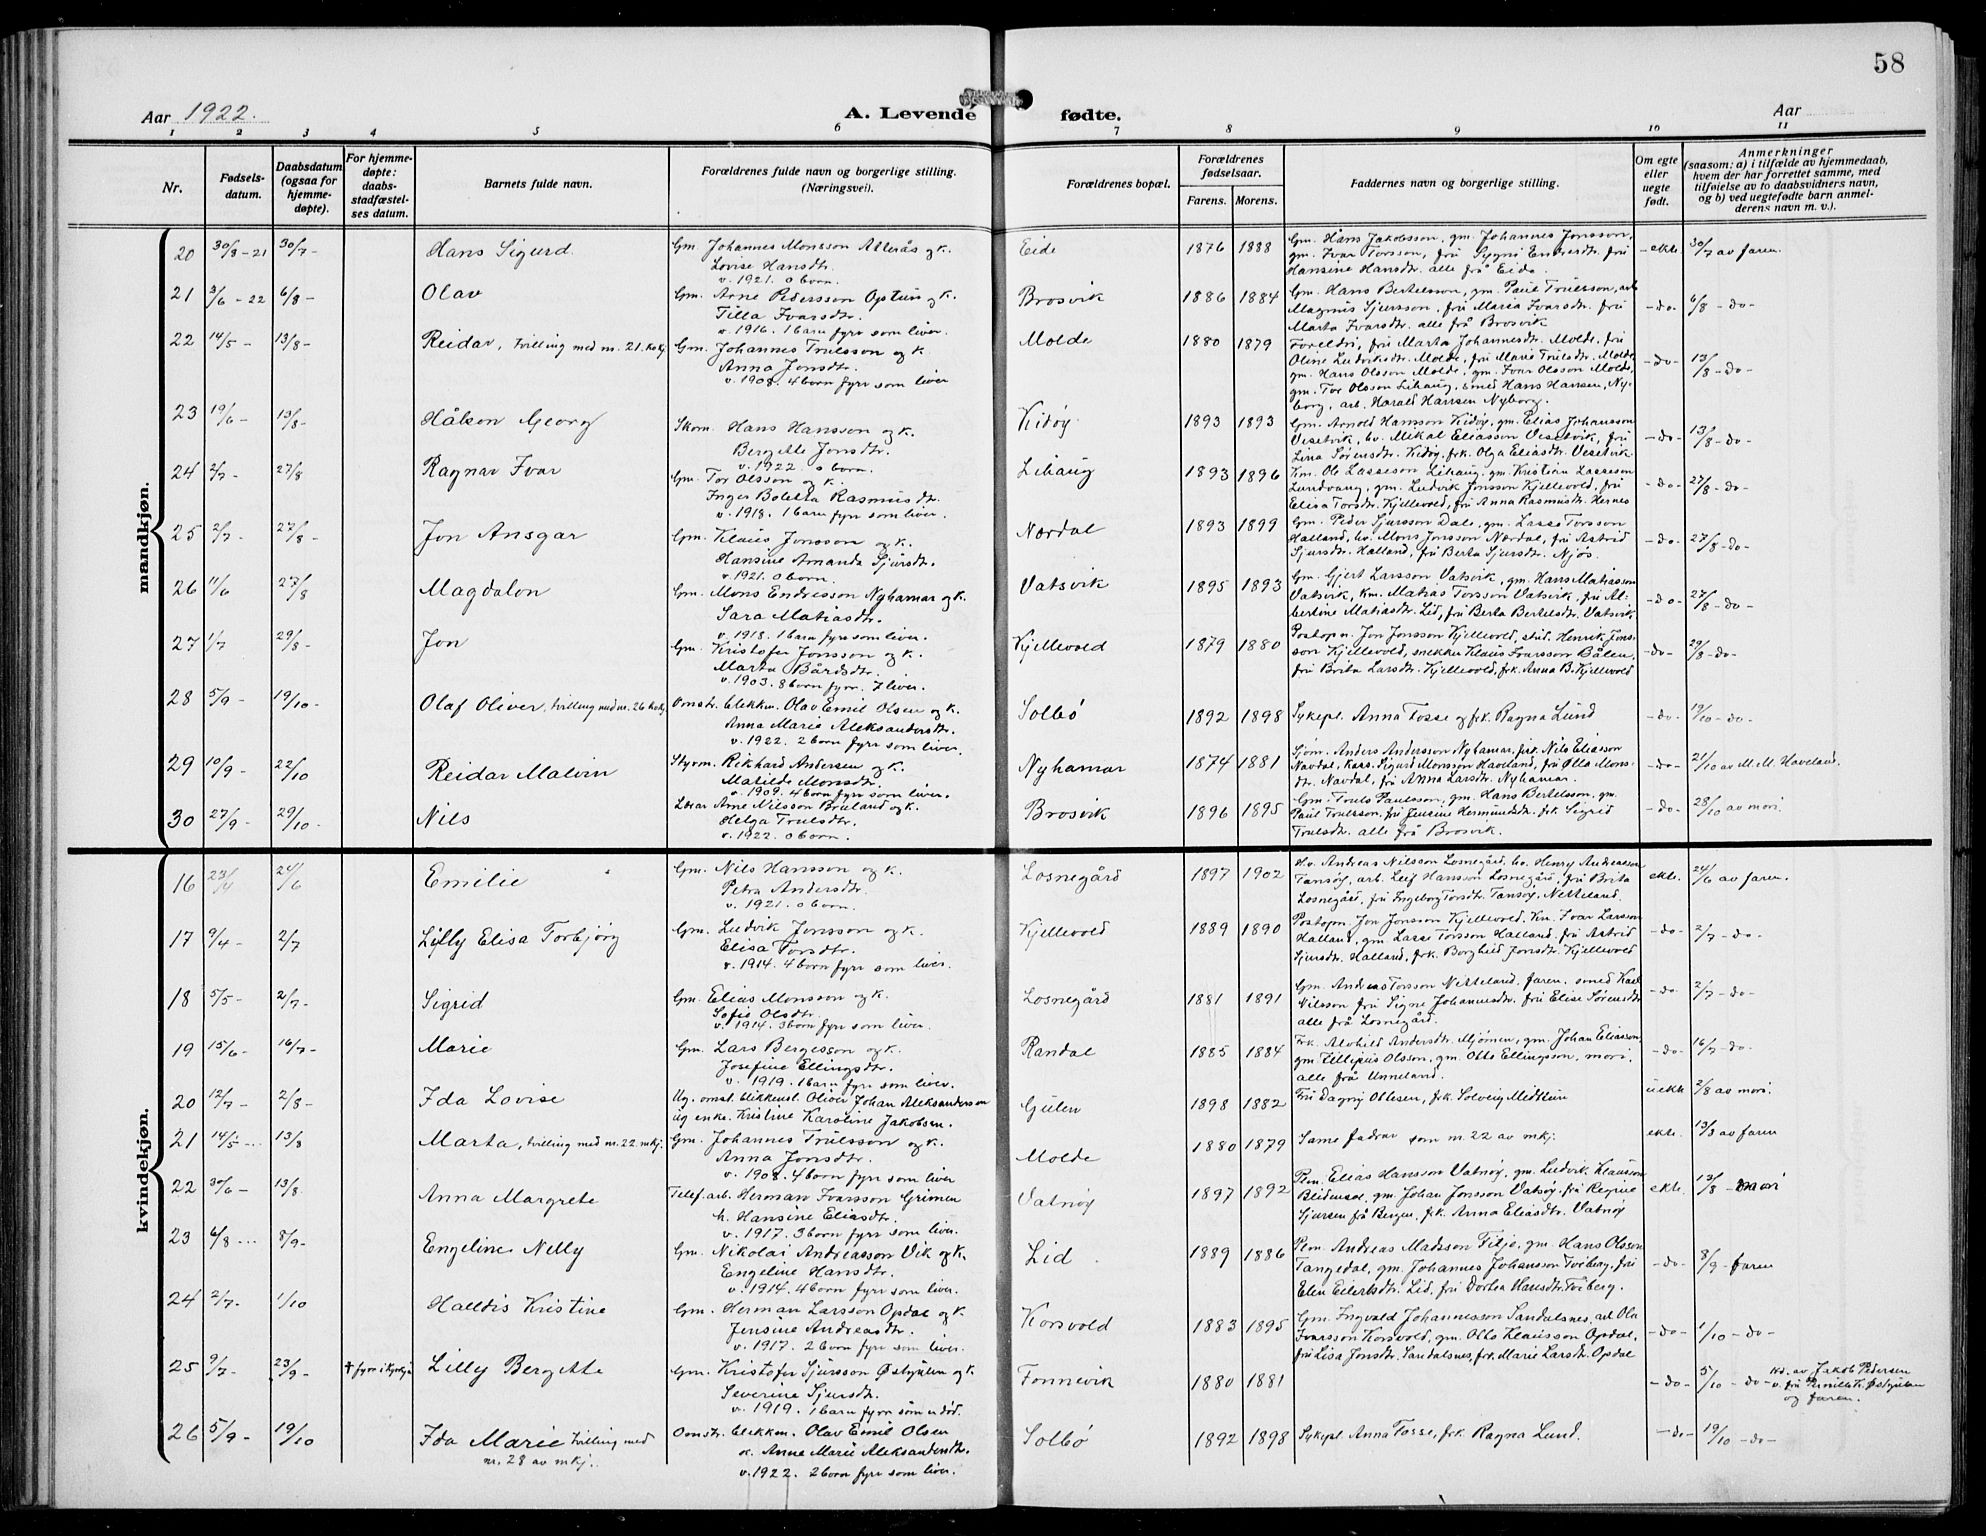 58
Aar 1922.
A. Levende fødte.
Aar
1 2 3 4 5 6 7 8 9 10 11
Nr.
Fødsels-
datum.
Daabsdatum
(ogsaa for
hjemme-
døpte).
For hjemme-
døpte:
daabs-
stadfæstel-
ses datum.
Barnets fulde navn.
Forældrenes fulde navn og borgerlige stilling.
(Næringsvei).
Forældrenes bopæl.
Forældrenes
fødselsaar.
Farens. Morens.
Faddernes navn og borgerlige stilling.
Om egte
eller
uegte
født.
Anmerkninger
(saasom: a) i tilfælde av hjemmedaab,
hvem der har forrettet samme, med
tilføielse av to daabsvidners navn,
og b) ved uegtefødte barn anmel-
derens navn m. v.).
mandkjøn.
20 30/8-21 30/7- Hans Sigurd Gm. Johannes Monsson Allerås og k. Eide 1876 1888 Gm. Hans Jakobsson, gm. Johannes Jonsson, -ekte. 30/7 av faren.
Lovise Hansdtr. gm. Ivar Torsson, frú Sygni Endresdtr. frú
v. 1921. 0 born. Hansine Hansdtr. alle frå Eide.
21 3/6-22 6/8- Olav Gm. Arne Pedersson Optun og k. Brosvik 1886 1884 Gm. Hans Bertelsson, gm. Paul Truesson, arb. -do- 6/8 -do-
Tilla Ivarsdtr. Magnus Sjursson, frú Maria Ivarsdtr. frú
v. 1916. 1 barn fyrr som liver. Marta Ivarsdtr. alle frå Brosvik
22 14/5- 13/8- Reidar, tvilling med nr. 21. kvkj. Gm. Johannes Truesson og k. Molde 1880 1879 Foreldri, frú Marta Johannesdtr. Molde, frú
Anna Jonsdtr. Oline Ludviksdtr. Molde, frú Marie Truesdtr. Molde, -do- 13/8 -do-
v. 1908. 4 born fyrr som liver gm. Hans Olsson Molde, gm. Ivar Olsson Molde,
gm. Tor Olsson Lihaug, smed Hans Hansen, Ny-
borg, arb. Harald Hansen Nyborg.
23 19/6- 13/8- Håkon Georg Skom. Hans Hansson og k. Kidøy 1893 1893 Gm. Arnold Hansson Kidøy, gm. Elias Johansson -do- 13/8 -do-
Bergitte Jonsdtr. Visetvik, hv. Mikal Eliasson Visetvik, frú
v. 1922. 0 born. Lina Sørensdtr. Kidøy, frk. Olga Eliasdtr. Visetvik
24 2/7- 27/8 Ragnar Ivar Gm. Tor Olsson og k. Lihaug 1893 1896 Km. Ole Lasseson Lihaug, gm. Kristian Lasseson -do- 27/8 -do-
Inger Boletta Rasmusdtr. Lundvang, gm. Ludvik Jonsson Kjellevold, frú
v. 1918. 1 barn fyrr som liver. Elisa Torsdtr. Kjellevold, frú Anna Rasmusdtr. Hernes
25 2/7- 27/8- Jon Ansgar Gm. Klaus Jonsson og k. Nordal 1893 1899 Gm. Peder Sjursson Dale, gm. Lasse Torsson -do- 27/8 -do-
Hansine Amanda Sjursdtr. Halland, hv. Mons Jonsson Nærdal, frú Astrid
v. 1921. 0 born. Sjursdtr. Halland, frú Berta Sjursdtr. Njøs.
26 11/6 27/8 Magdalon Gm. Mons Endresson Nyhamar og k. Vatsvik 1895 1893 Gm. Gjert Larsson Vatsvik, gm. Hans Matiasson -do- 27/8 -do-
Sara Matiasdtr. Vatsvik, km. Matias Torsson Vatsvik, frú Al-
v. 1918. 1 barn fyrr som liver. bertine Matiasdtr. Lid, frú Berta Bertelsdtr. Vatsvik
27 1/7 29/8- Jon Gm. Kristofer Jonsson og k. Kjellevold 1879 1880 Postopn. Jon Jonsson Kjellevold, stud. Henrik Jons- -do- 29/8 -do-
Marta Bårdsdtr. son Kjellevold, snekker Klaus Ivarsson Bålen,
v. 1903. 8 born fyrr. 7 liver. frú Brita Larsdtr. Kjellevold, frk. Anna B. Kjellevold
28 5/9- 19/10- Olaf Oliver, tvilling med nr. 26 kvkj. Omstr. blekkm. Olav Emil Olsen og k. Solbø 1892 1898 Sykepl. Anna Tosse og frk. Ragna Lund -do- 19/10 -do-
Anna Marie Aleksandersdtr.
v. 1922. 2 born fyrr som liver.
29 10/9- 22/10 Reidar Malvin Styrm. Rikhard Andersen og k. Nyhamar 1874 1881 Sjøm. Anders Andersson Nyhamar, frk. Nils Eliasson -do- 21/10 av M. M. Haveland.
Matilde Monsdtr. Navdal, kass. Sigurd Monsson Haveland, frú Otta Mons-
v. 1909. 4 born fyrr som liver dtr. Navdal, frú Anna Larsdtr. Nyhamar.
30 27/9- 29/10- Nils Lærar Arne Nilsson Bruland og k. Brosvik 1896 1895 Gm. Truls Paulsson, gm. Hans Bertelsson, gm. -do- 28/10 av mori
Helga Truesdtr. Paul Truesson, frú Jensine Hermundsdtr. frk. Sigrid
v. 1922. 0 born. Truesdtr. alle frå Brosvik.
kvindekjøn.
16 23/4 24/6 Emilie Gm. Nils Hansson og k. Losnegård 1897 1902 Hv. Andreas Nilsson Losnegård, hv. Henry Andreasson ekte. 24/6 av faren.
Petra Andersdtr. Tansøy, arb. Leif Hansson Losnegård, frú Brita
v. 1921. 0 born. Losnegård, frú Ingeborg Torsdtr. Tansøy, Netteland.
17 9/4- 2/7 Lilly Elisa Torbjørg Gm. Ludvik Jonsson og k. Kjellevold 1889 1890 Postopn. Jon Jonsson Kjellevold, km. Ivar Larsson -do- 2/7 -do-
Elisa Torsdtr. Halland, gm. Lasse Torsson Halland, frú Astrid
v. 1914. 4 born fyrr som liver. Sjursdtr. Halland, frk. Borghild Jonsdtr. Kjellevold
18 5/5- 2/7- Sigrid Gm. Elias Monsson og k. Losnegård 1881 1891 Gm. Andreas Torsson Netteland, faren, smed Karl -do- 2/7 -do-
Sofie Olsdtr. Nilsson frú Signe Johannesdtr. frú Elise Sørensdtr.
v. 1914. 3 born fyrr som liver. alle frå Losnegård.
19 15/6- 16/7- Marie Gm. Lars Bergesson og k. Randal 1885 1884 Frk. Alvhild Andersdtr. Mjømen, gm. Johan Eliasson, -do- 16/7 -do-
Josefine Ellingsdtr. gm. Zillejius Olsson, gm. Otto Ellingsson, mori,
v. 1919. 1 barn fyrr som liver. alle frå Unneland.
20 12/7- 2/8- Ida Lovise Ug. omst. blikkensl. Oliver Johan Aleksandersson Gulen 1898 1882 Frú Dagny Ottesen, frk. Solveig Midttun uekte 2/8 av mori.
og enke. Kristine Karoline Jakobsen.
21 14/5- 13/8 Marta, tvilling med nr. 22. mkj. Gm. Johannes Truesson og k. Molde 1880 1879 Same fadrar som nr. 22 av mkj. ekte. 13/8 av faren
Anna Jonsdtr.
v. 1908. 4 born fyrr som liver
22 30/6- 13/8. Anna Margrete Telef. arb. Herman Ivarsson Grimen Vatnøy 1897 1892 Pem. Elias Hansson Vatnøy, gm. Ludvik Klausson ekte. 13/8 -mori
k. Hansine Eliasdtr. Bleidensol, gm. Johan Jonsson Vatsøy, frú Regine
v. 1917. 3 born fyrr som liver. Sjursen frå Bergen, frk. Anna Eliasdtr. Vatnøy
23 6/8... 8/9- Engeline Nelly Gm. Nikolai Andreasson Vik og k. Lid. 1889 1886 Pem. Andreas Madsson Filje, gm. Hans Olsson -do- 8/9 -faren
Engeline Hansdtr. Tangedal, gm. Johannes Johansson Tveberg, frú
v. 1914. 4 born fyrr som liver. Elen Eilertsdtr. Lid, frú Dortea Hansdtr. Tveberg.
24 2/7. 1/10 Halldis Kristine Gm. Herman Larsson Opdal og k. Korsvold 1883 1895 Gm. Ingvald Johannesson Sandalsnes, arb. Ola -do- 1/10 -do-
Jensine Andreasdtr. Ivarsson Korsvold, gm. Otto Klausson Opdal,
v. 1917. 2 born fyrr som liver. frú Lisa Jonsdtr. Sandalsnes, frk. Marie Larsdtr. Opdal
25 9/7- 23/9- † fyrr i kyrkja Lilly Bergitte Gm. Kristofer Sjursson Østgulen og k. Fonnevik 1880 1881 -do- 5/10 -do- Hd. av Jakob Pedersen
Severine Sjursdtr. v. frú Pernille K. Østgulen
v. 1919. 1 barn fyrr som er død. og faren.
26 5/9- 19/10 Ida Marie tvilling med Omstr. blekkm. Olav Emil Olsen Solbø 1892 1898 Sykepl. Anna Tosse, frk. Ragna Lund. -do- 19/10 -do-
nr. 28 av mkj. k. Anne Marie Aleksandersdtr.
v. 1922. 2 born fyrr som liver.